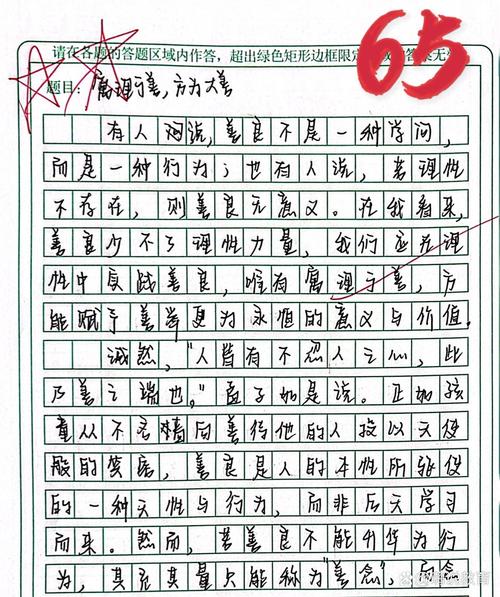 65
请在各题的答题区域内作答，超出绿色矩形边框限定 答案无
题目：寓理于善，方为大善
有人洞说，善良不是一种学问，
而是一种行为；也有人说，若理性
不存在，则善良无意义。在我看来，
善良少不了理性力量，我们应在理
性中践善良，唯有寓理于善，方
能赋予善举更为永恒的意义与价值。
诚然，“人皆有不忍人之心，此
乃善之端也。”孟子如是说。正如孩
童从不吝啬向善待他的人投以天使
般的笑容，善良是人的本性所驱使
的一种天性与行为，而非后天学习
而来。然而，若善良不能升华为行
为，其充其量只能称为“善念”，而念